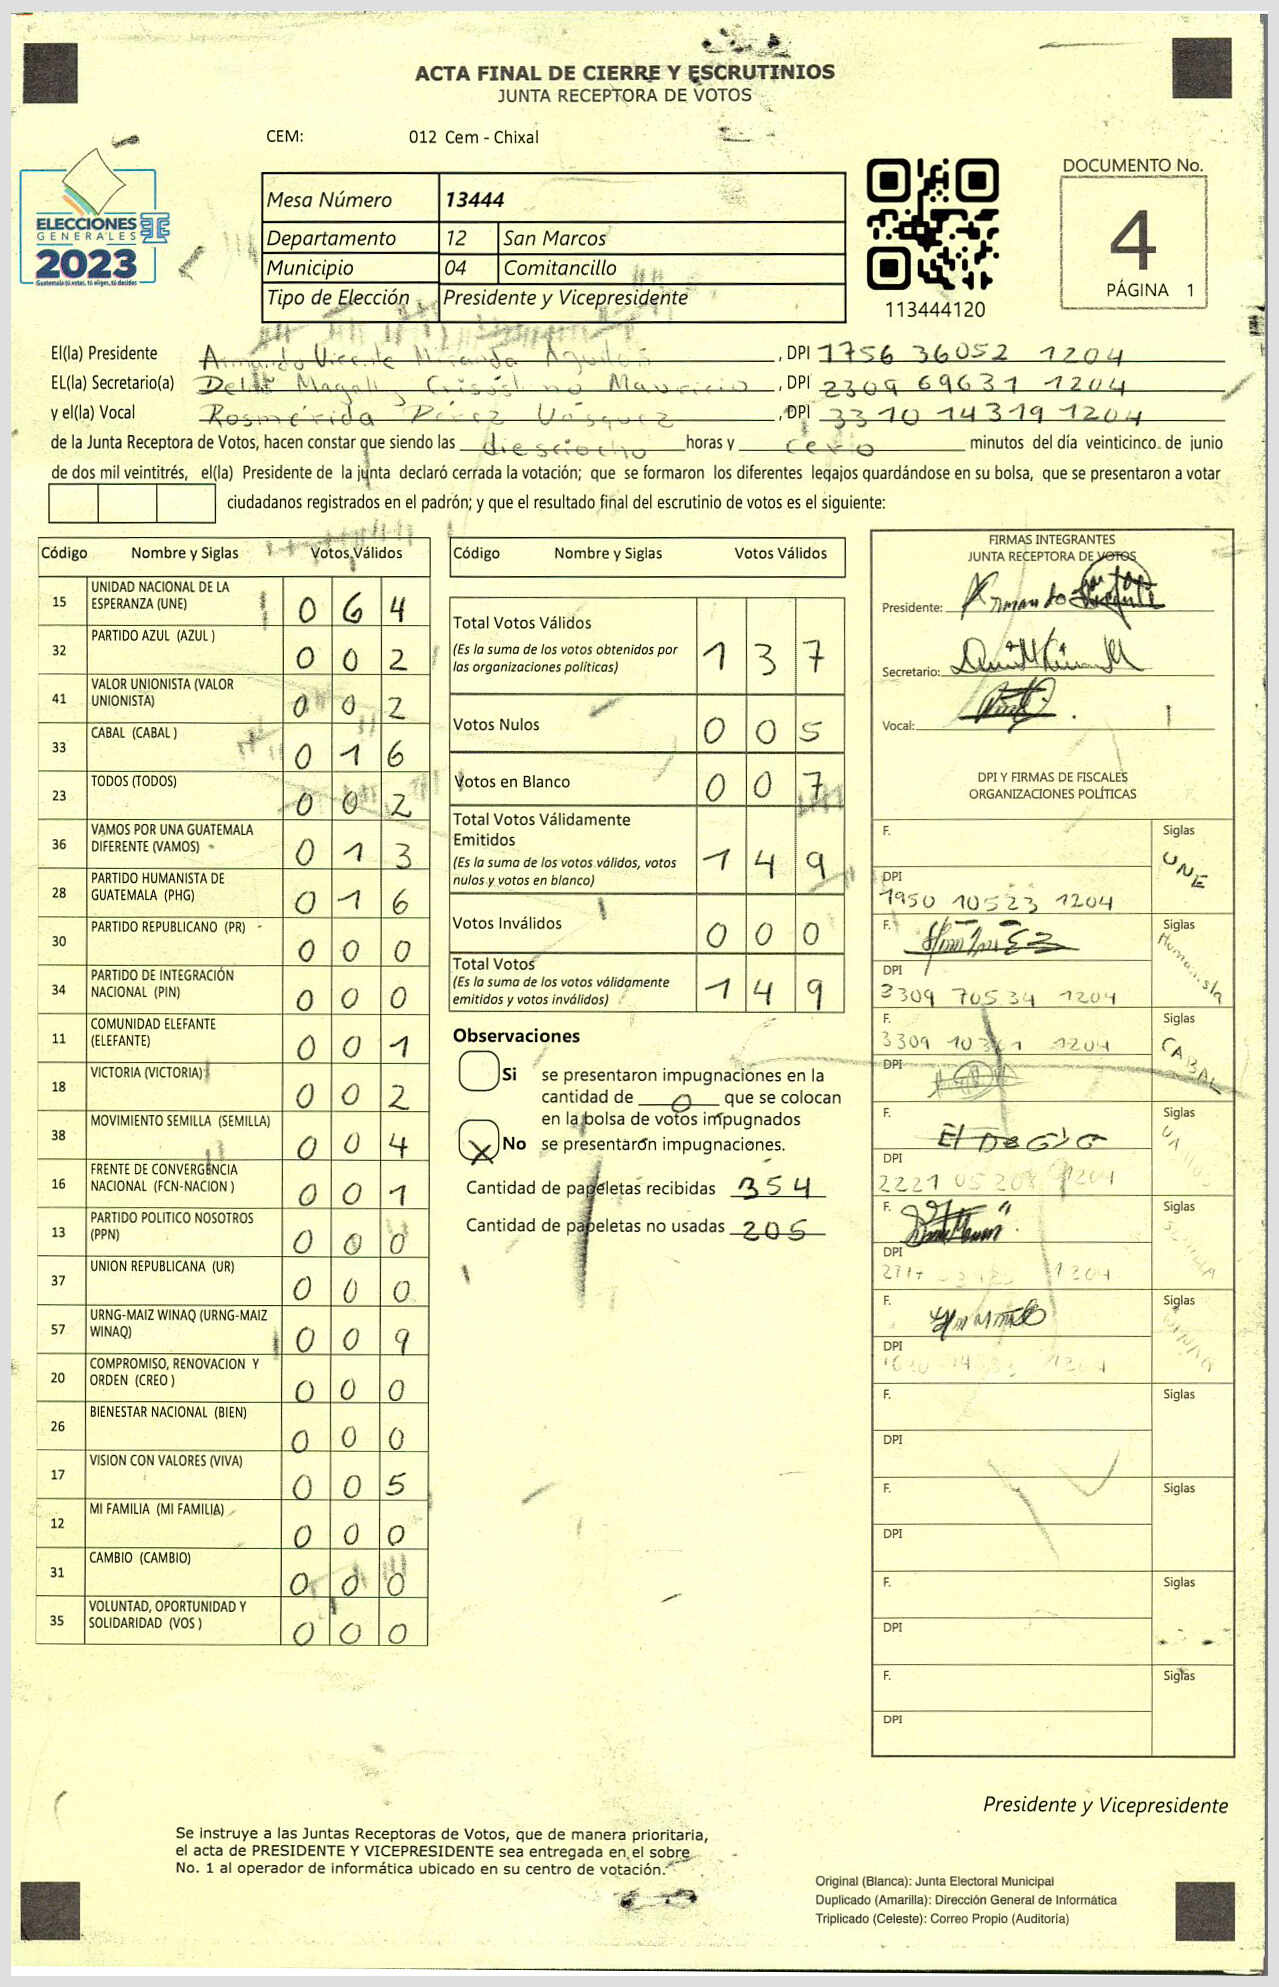 ACTA FINAL DE CIERRE Y ESCRUTINIOS
JUNTA RECEPTORA DE VOTOS
CEM: 012 Cem - Chixal
DOCUMENTO No.
4
PÁGINA 1
ELECCIONES
GENERALES
2023
Guatemala tú votas, tú eliges, tú decides
Mesa Número 13444
Departamento 12 San Marcos
Municipio 04 Comitancillo
Tipo de Elección Presidente y Vicepresidente
113444120
El(la) Presidente Armando Vicente Miranda Aguilón , DPI 1756 36052 1204
EL(la) Secretario(a) Magaly Mauricio , DPI 2309 69631 1204
y el(la) Vocal Rosmérida Pérez Vásquez , DPI 3310 14319 1204
de la Junta Receptora de Votos, hacen constar que siendo las diesciocho horas y cero minutos del día veinticinco de junio
de dos mil veintitrés, el(la) Presidente de la junta declaró cerrada la votación; que se formaron los diferentes legajos guardándose en su bolsa, que se presentaron a votar
ciudadanos registrados en el padrón; y que el resultado final del escrutinio de votos es el siguiente:
Código Nombre y Siglas Votos Válidos
15 UNIDAD NACIONAL DE LA ESPERANZA (UNE) 0 6 4
32 PARTIDO AZUL (AZUL ) 0 0 2
41 VALOR UNIONISTA (VALOR UNIONISTA) 0 0 2
33 CABAL (CABAL ) 0 1 6
23 TODOS (TODOS) 0 0 2
36 VAMOS POR UNA GUATEMALA DIFERENTE (VAMOS) 0 1 3
28 PARTIDO HUMANISTA DE GUATEMALA (PHG) 0 1 6
30 PARTIDO REPUBLICANO (PR) 0 0 0
34 PARTIDO DE INTEGRACIÓN NACIONAL (PIN) 0 0 0
11 COMUNIDAD ELEFANTE (ELEFANTE) 0 0 1
18 VICTORIA (VICTORIA) 0 0 2
38 MOVIMIENTO SEMILLA (SEMILLA) 0 0 4
16 FRENTE DE CONVERGENCIA NACIONAL (FCN-NACION ) 0 0 1
13 PARTIDO POLITICO NOSOTROS (PPN) 0 0 0
37 UNION REPUBLICANA (UR) 0 0 0
57 URNG-MAIZ WINAQ (URNG-MAIZ WINAQ) 0 0 9
20 COMPROMISO, RENOVACION Y ORDEN (CREO ) 0 0 0
26 BIENESTAR NACIONAL (BIEN) 0 0 0
17 VISION CON VALORES (VIVA) 0 0 5
12 MI FAMILIA (MI FAMILIA) 0 0 0
31 CAMBIO (CAMBIO) 0 0 0
35 VOLUNTAD, OPORTUNIDAD Y SOLIDARIDAD (VOS ) 0 0 0
Código Nombre y Siglas Votos Válidos
Total Votos Válidos 1 3 7
(Es la suma de los votos obtenidos por
las organizaciones políticas)
Votos Nulos 0 0 5
Votos en Blanco 0 0 7
Total Votos Válidamente
Emitidos 1 4 9
(Es la suma de los votos válidos, votos
nulos y votos en blanco)
Votos Inválidos 0 0 0
Total Votos 1 4 9
(Es la suma de los votos válidamente
emitidos y votos inválidos)
Observaciones
Si se presentaron impugnaciones en la
cantidad de 0 que se colocan
en la bolsa de votos impugnados
X No se presentaron impugnaciones.
Cantidad de papeletas recibidas 354
Cantidad de papeletas no usadas 205
FIRMAS INTEGRANTES
JUNTA RECEPTORA DE VOTOS
Presidente: Armando
Secretario:
Vocal:
DPI Y FIRMAS DE FISCALES
ORGANIZACIONES POLÍTICAS
F. Siglas UNE
DPI 1950 10523 1204
F. Siglas Humanista
DPI 3309 70534 1204
F. 3309 1204 Siglas CABAL
DPI
F. Siglas
DPI 2221 05208 1204
F. Siglas
DPI 1204
F. Siglas
DPI 1204
F. Siglas
DPI
F. Siglas
DPI
F. Siglas
DPI
F. Siglas
DPI
Presidente y Vicepresidente
Se instruye a las Juntas Receptoras de Votos, que de manera prioritaria,
el acta de PRESIDENTE Y VICEPRESIDENTE sea entregada en el sobre
No. 1 al operador de informática ubicado en su centro de votación.
Original (Blanca): Junta Electoral Municipal
Duplicado (Amarilla): Dirección General de Informática
Triplicado (Celeste): Correo Propio (Auditoría)